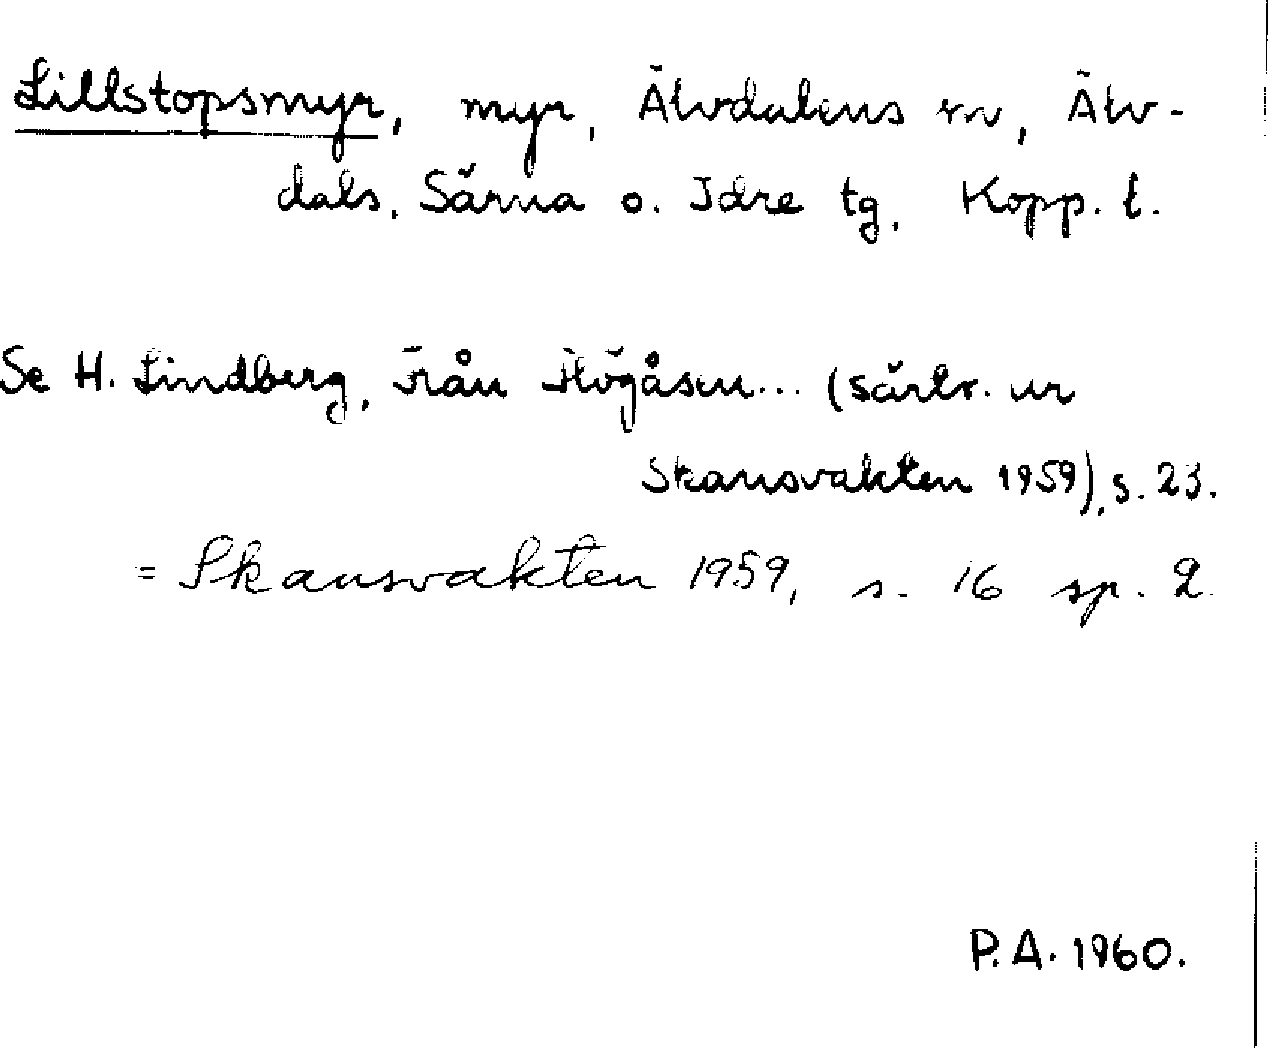 Lillstopsmyr, myr, Älvdalens sn, Älv-
dals, Särna o. Idre tg, Kopp. l.
Se H. Lindberg, Från Högåsen... (särtr. ur
Skansvakten 1959), s. 23.
= Skansvakten 1959, s. 16 sp. 2.
P.A. 1960.